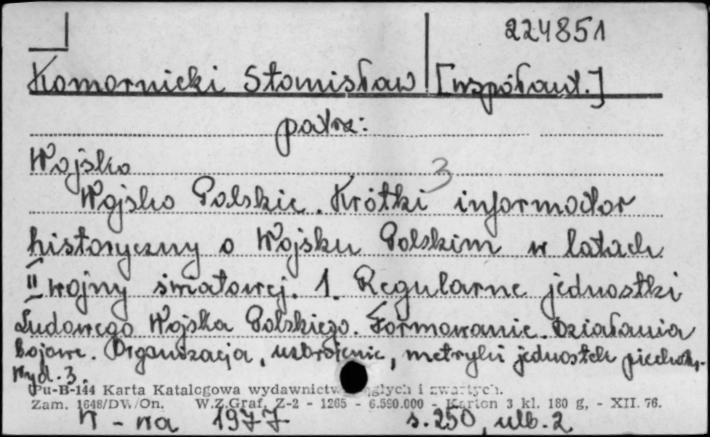 224851
Komornicki Stanisław [współaut.]
patrz:
Wojsko 3
Wojsko Polskie. Krótki informator
historyczny o Wojsku Polskim w latach
II wojny światowej. 1. Regularne jednostki
Ludowego Wojska Polskiego. Formowanie. Działania
bojowe. Organizacja, uzbrojenie, metryki jednostek piechoty.
Wyd. 3.
Pu-B-144 Karta Katalogowa wydawnictw ciągłych i zwartych.
Zam. 1648/DW./On. W.Z.Graf. Z-2 - 1265 - 6.590.000 - Karton 3 kl. 180 g, - XII. 76.
W-wa 1977 s. 250, ulb. 2